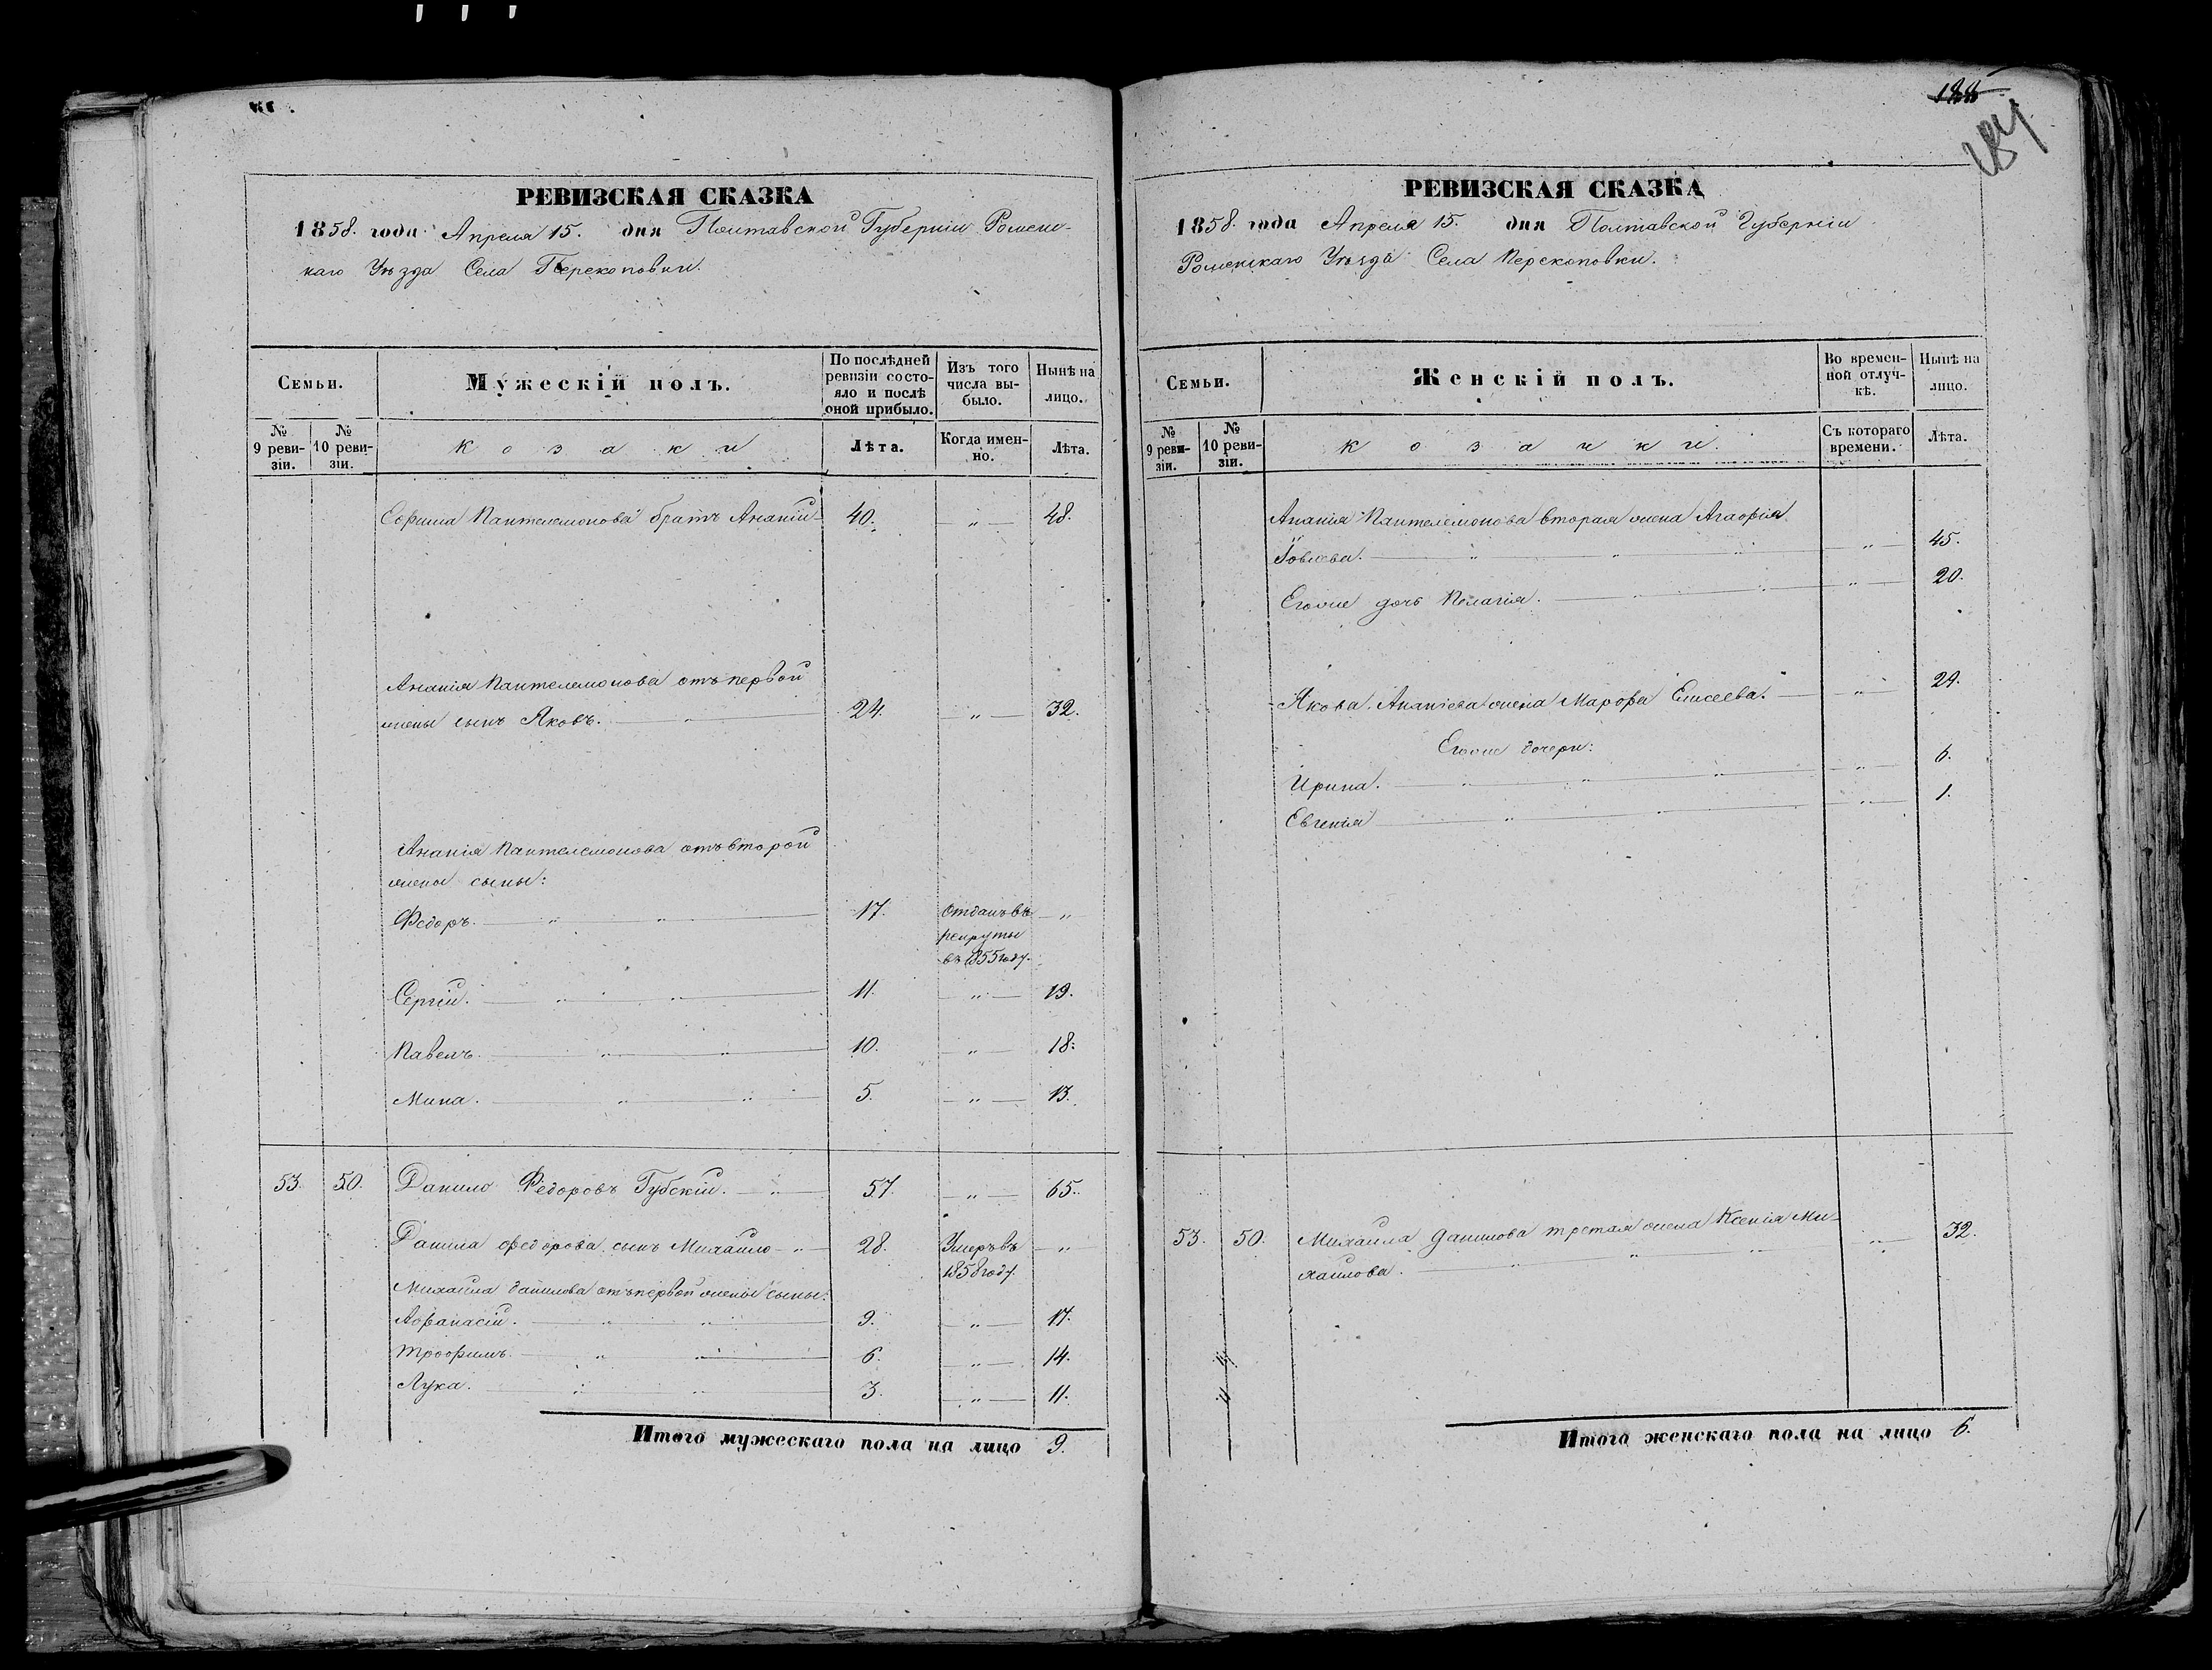 РЕВИЗСКАЯ СКАЗКА
1858. года Апреля 15. дня Полтавской Губерніи Роменс-
каго Уѣзда Села Перекоповки.
Семьи.
Мужескій полъ.
По послѣдней ревизіи состояло и послѣ оной прибыло.
Изъ того числа выбыло.
Нынѣ на лицо.
№ 9 ревизіи.
№ 10 ревизіи.
Козаки
Лѣта.
Когда именно.
Лѣта.
Ефима Пантелемонова братъ Ананій 40. — „ — 48.
Ананія Пантелемонова отъ первой
жены сынъ Яковъ. 24. — „ — 32.
Ананія Пантелемонова отъ второй
жены сыны:
Федоръ. 17. отданъ въ рекруты въ 1855 году. — „
Сергій. 11. — „ — 19.
Павелъ. 10. — „ — 18.
Мина. 5. — „ — 13.
53. 50. Данило Федоровъ Губскій. 57. — „ — 65.
Данила Федорова сынъ Михайло 28. Умеръ въ 1858 году. — „
Михайла Данилова отъ первой жены сыны:
Афанасій. 9. — „ — 17.
Трофимъ. 6. — „ — 14.
Лука. 3. — „ — 11.
Итого мужескаго пола на лицо 9.
188
184
РЕВИЗСКАЯ СКАЗКА
1858. года Апреля 15. дня Полтавской Губерніи
Роменскаго Уѣзда Села Перекоповки.
Семьи.
Женскій полъ.
Во временной отлучкѣ.
Нынѣ на лицо.
№ 9 ревизіи.
№ 10 ревизіи.
Козачки.
Съ котораго времени.
Лѣта.
Ананія Пантелемонова вторая жена Агафія
Іовлева. — „ — 45.
Егоже дочь Пелагія. — „ — 20.
Якова Ананіева жена Марфа Елисеева. — „ — 29.
Егоже дочери:
Ирина. — „ — 6.
Евгенія — „ — 1.
53. 50. Михайла Данилова третая жена Ксенія Ми-
хайлова. — „ — 32.
Итого женскаго пола на лицо 6.